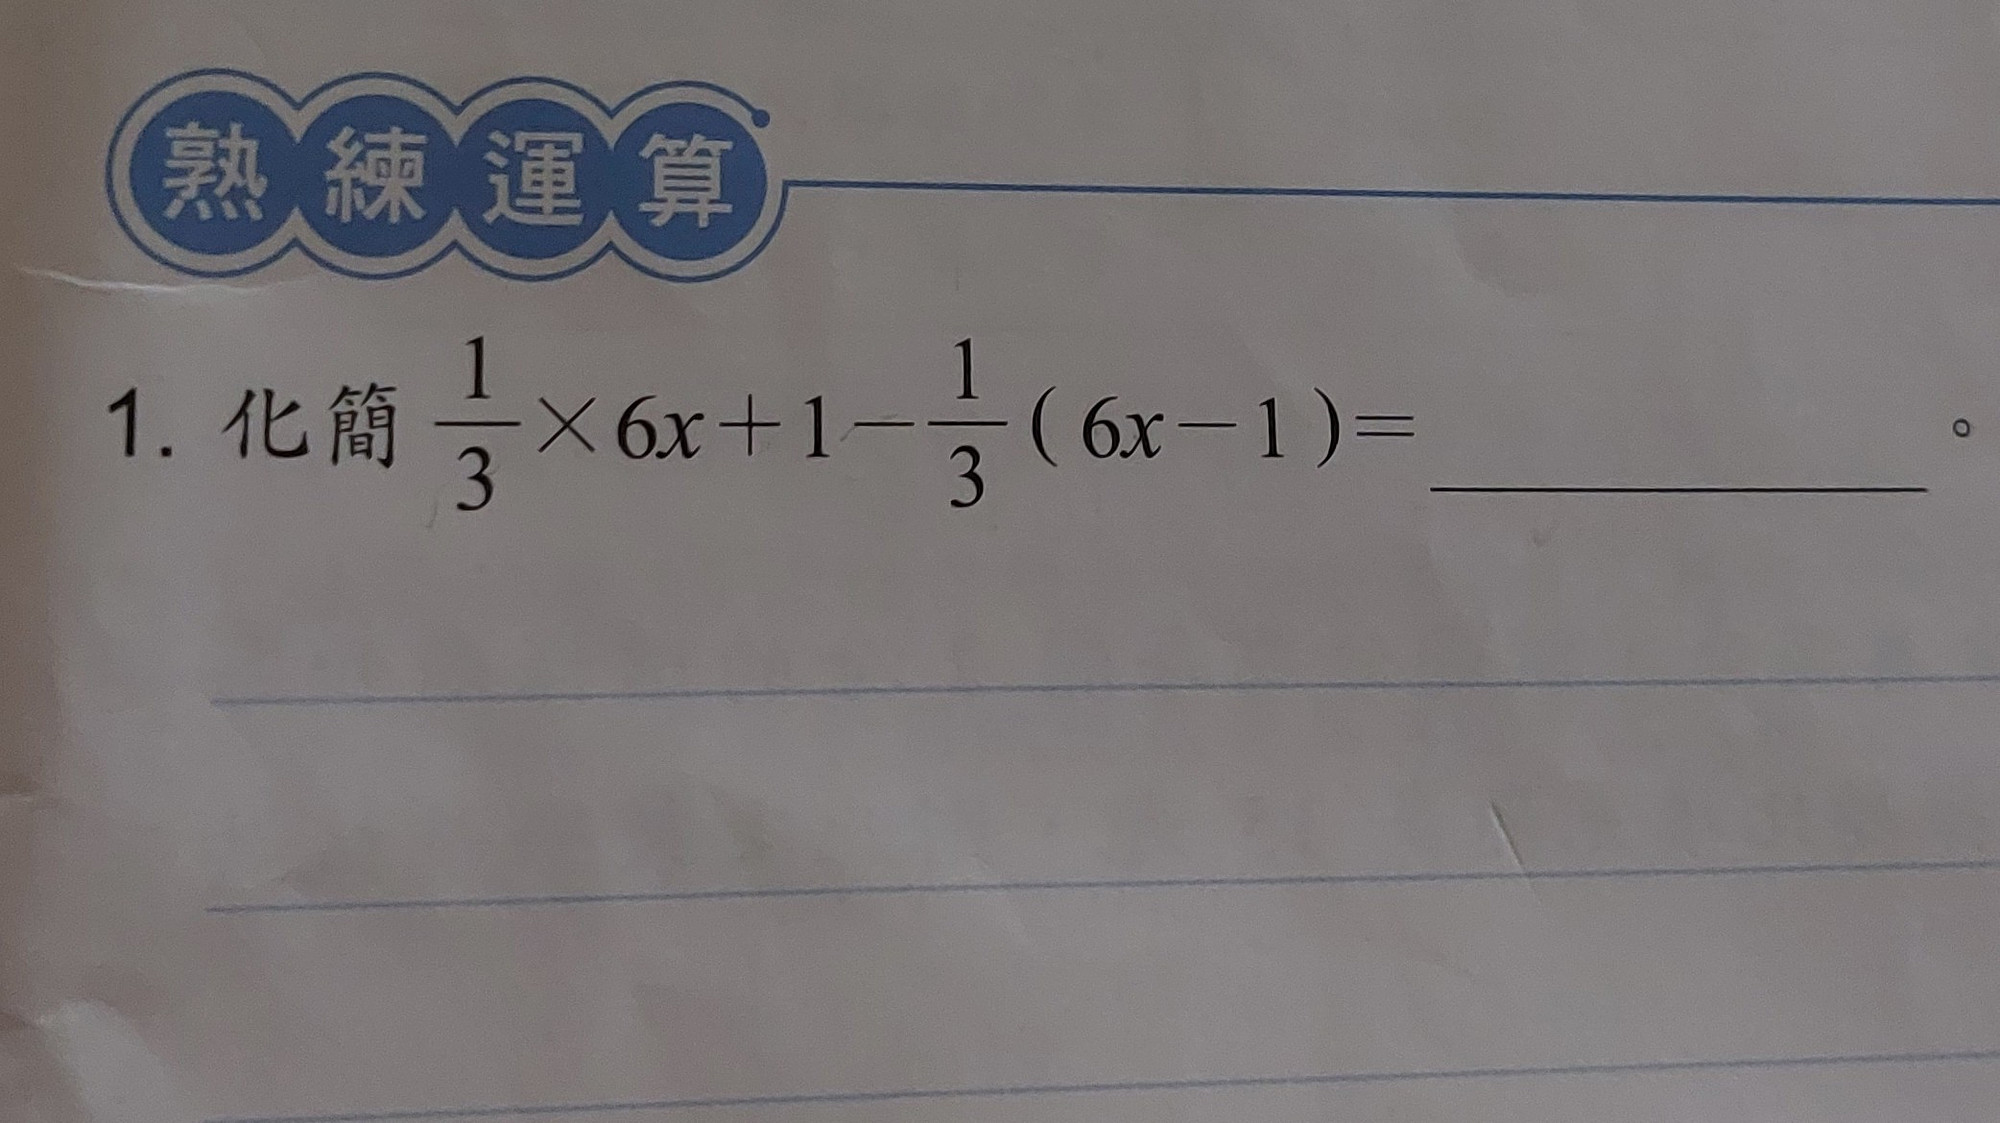 熟練運算
1. 化簡 \frac{1}{3}×6x+1-\frac{1}{3}( 6x-1 )=__________。